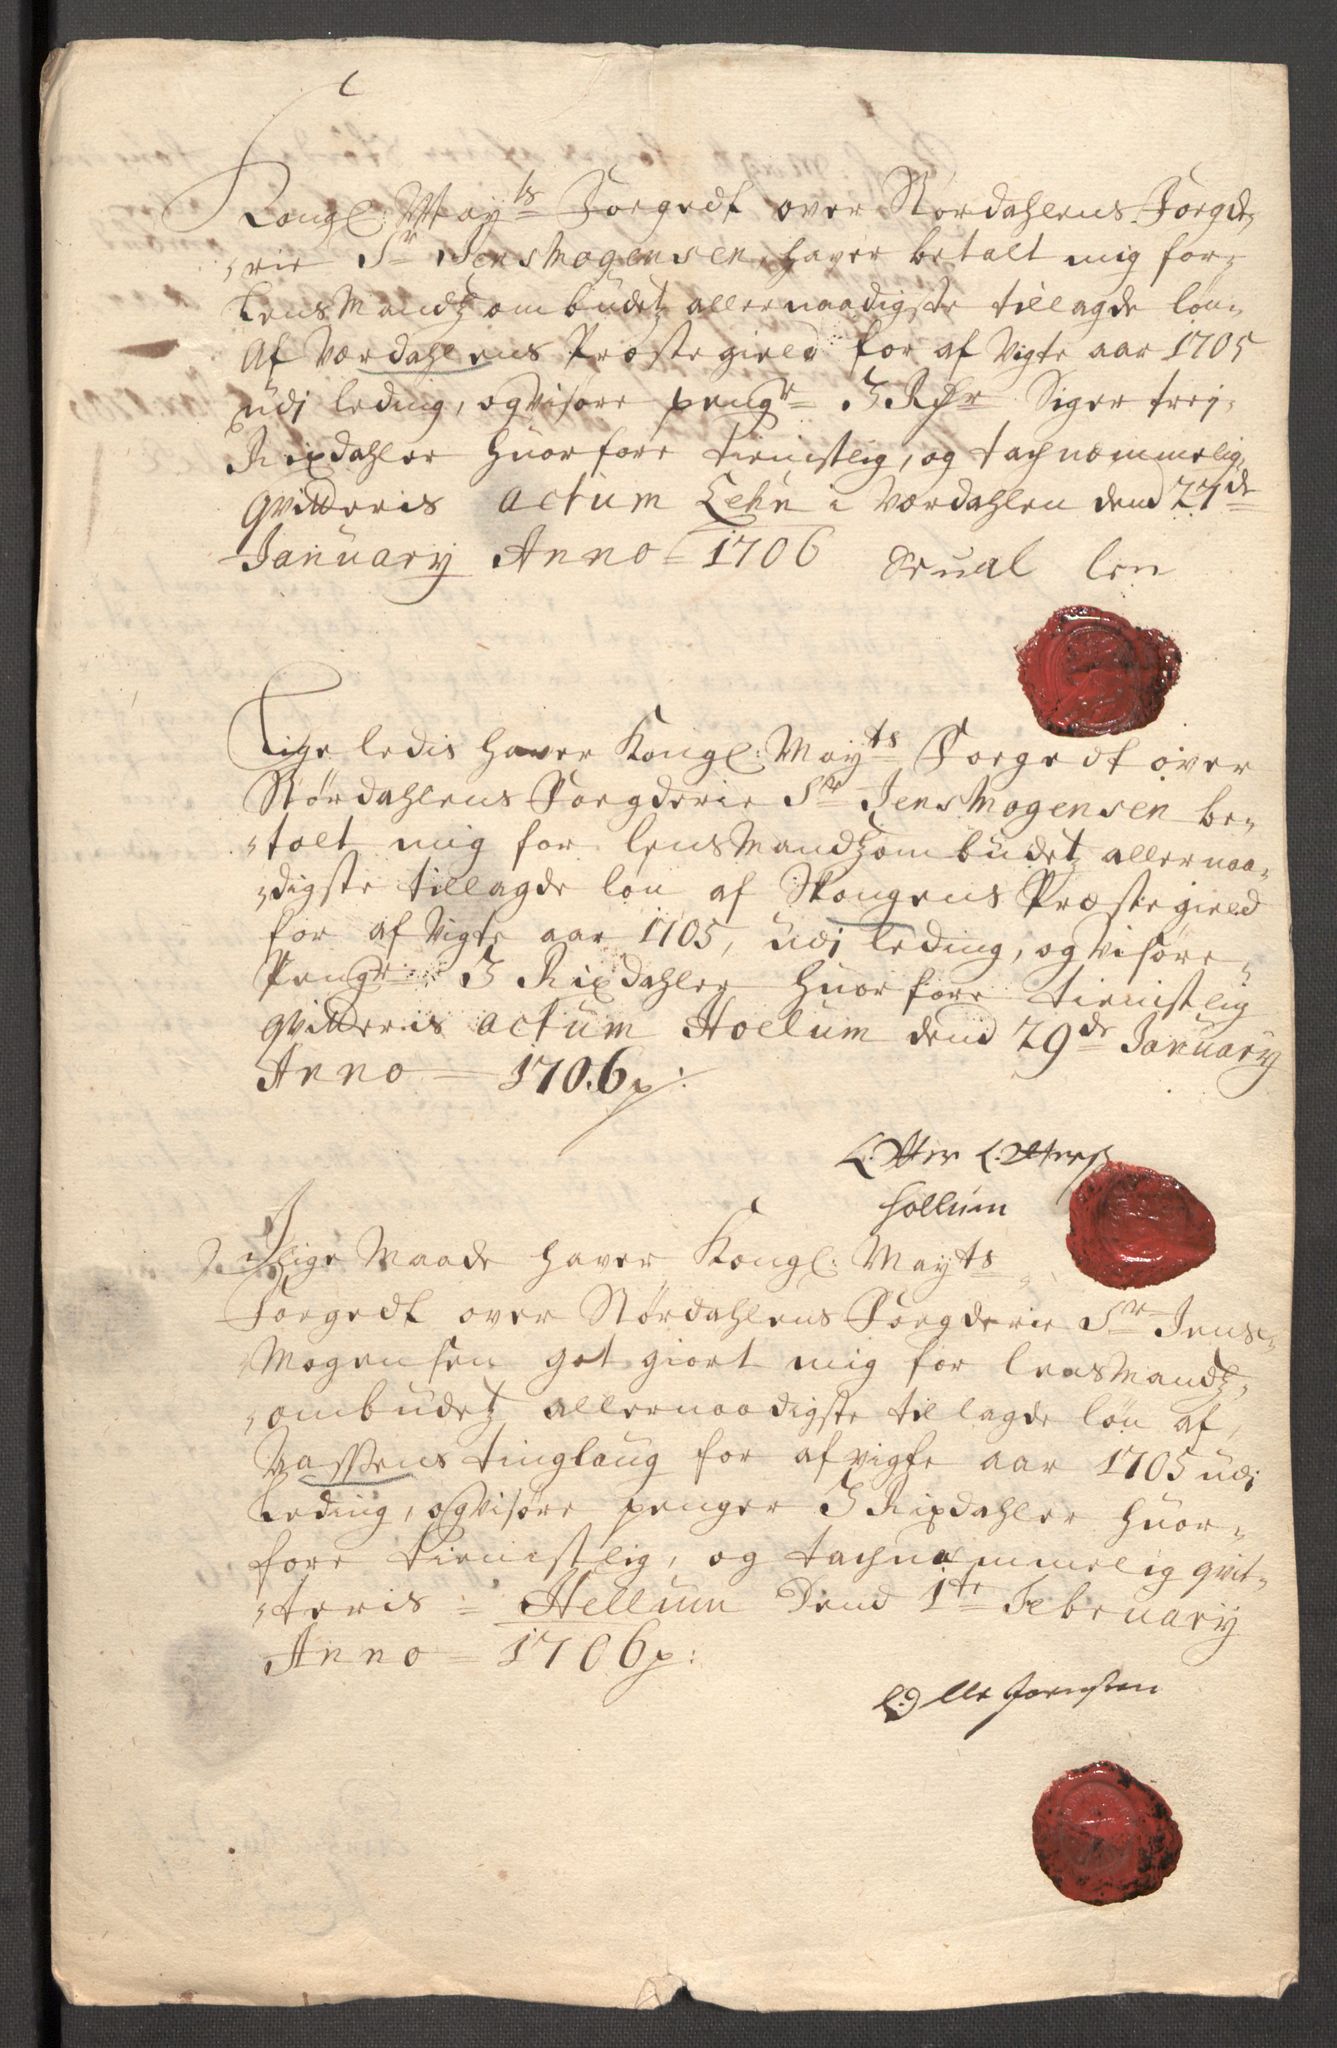 Kongl: May ts Foegedt over Størdahlens Foegde¬
¬rie Sr Jens Mogensen, haver betalt mig for¬
Lens Mandtz ombudetz allernaadigste tillagde løn¬
Af Værdahlens Præstegield for af Vigte aar 1705
udj leding, og visøre pengr 3 Rdr Siger trej¬
Rixdahler huorfore tienistlig, og tachnæmmelig,
qvitteris actum Lehn i Værdahlen dend 27de
January Anno = 1706 Seual len
Lige ledis haver Kongl: May ts Foegedt over
Størdahlens Foegderie Sr Jens Mogensen be¬
¬talt mig for lens Mandtz ombudetz allernaa¬
¬digste tillagde løn af Skongens Præstegield
for af Vigte aar 1705, udj leding, og visøre¬
Pengr 3 Rixdahler huorfore tienistlig
qvitteris actum Hollum dend 29de January
Anno — 1706 p:
Hollum
J lige Maade haver Kongl: May ts
Foegedt over Størdahlens Foegderie Sr Jens¬
Mogensen got giort mig for lens Mandtz¬
¬ombudetz allernaadigste tillagde løn af,
Vassens tinglaug for af vigte aar 1705 udj
Leding, og visøre penger 3 Rixdahler huor¬
fore tienistlig, og tachnæmmelig qvit¬
¬teris = Hellum Dend 1te February
Anno — 1706 p:
Olle Joensen